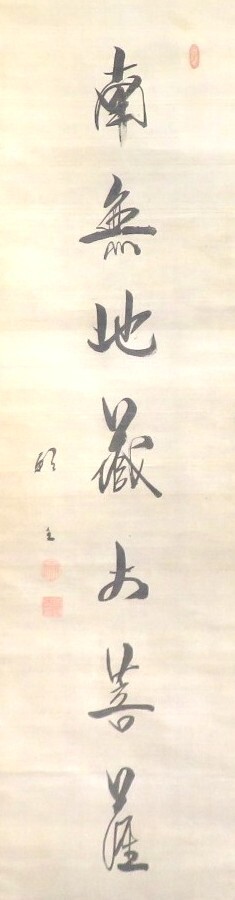 南無地蔵大菩薩